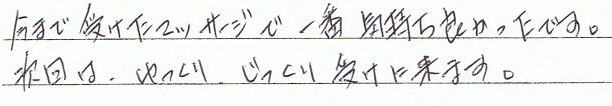 今まで受けたマッサージで一番気持ち良かったです。
次回は、ゆっくり じっくり受けに来ます。